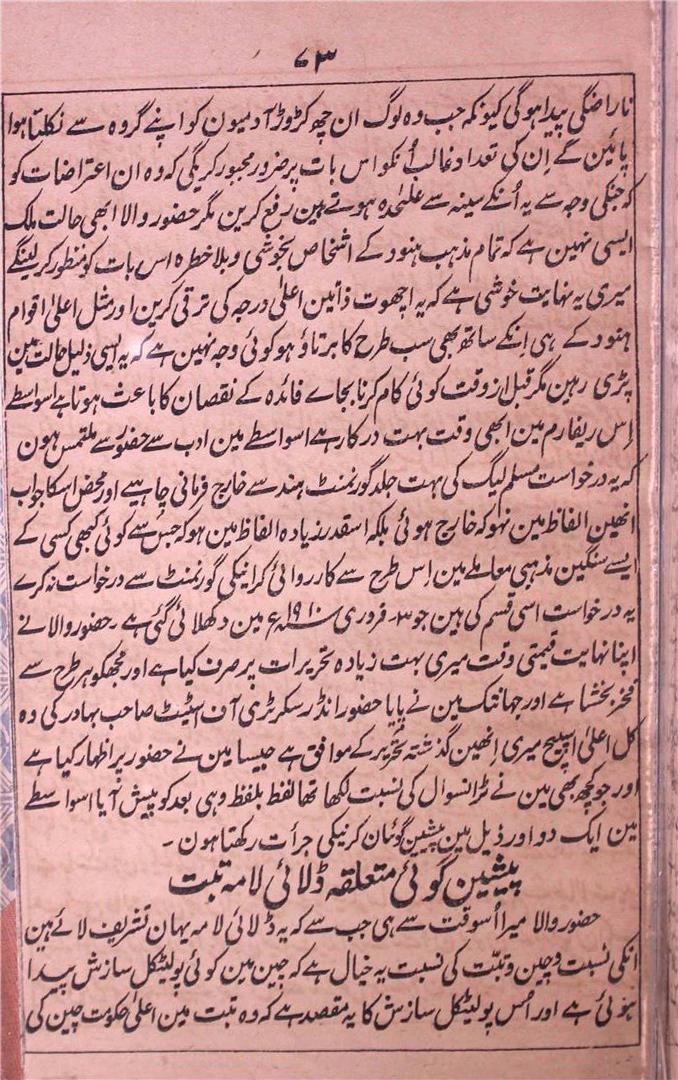 ۷۳
ناراضگی پیدا ہوگی کیونکہ جب وہ لوگ ان چھ کڑوڑ آدمیون کو اپنے گروہ سے نکلتا ہوا
پائین گے اِن کی تعداد غالب اُنکو اس بات پر ضرور مجبور کریگی کہ وہ ان اعتراضات کو
کہ جنکی وجہ سے یہ اُنکے سینہ سے علٰحدہ ہوتے ہین رفع کرین مگر حضور والا ابھی حالت ملک
ایسی نہین ہے کہ تمام مذہب ہنود کے اشخاص بخوشی و بلا خطرہ اس بات کو منظور کرلینگے
میری یہ نہایت خوشی ہے کہ یہ اچھوت ذاتین اعلیٰ درجہ کی ترقی کرین اور مثل اعلیٰ اقوام
ہنود کے ہی اِنکے ساتھ بھی سب طرح کا برتاؤ ہو کوئی وجہ نہین ہے کہ یہ ایسی ذلیل حالت مین
پڑی رہین مگر قبل از وقت کوئی کام کرنا بجاے فائدہ کے نقصان کا باعث ہوتا ہے اسواسطے
اِس ریفارم مین ابھی وقت بہت درکار ہے اسواسطے مین ادب سے حضور سے ملتمس ہون
کہ یہ درخواست مسلم لیگ کی بہت جلد گورنمنٹ ہند سے خارج فرمانی چاہیے اور محض اسکا جواب
انھین الفاظ مین نہو کہ خارج ہوئی بلکہ اسقدر زیادہ الفاظ مین ہو کہ جس سے کوئی کبھی کسی کے
ایسے سنگین مذہبی معاملے مین اِس طرح سے کارروائی کرانیکی گورنمنٹ سے درخواست نہ کرے
یہ درخواست اسی قسم کی ہین جو ۳۔ فروری ۱۹۱۰ء مین دکھلائی گئی ہے ۔ حضور والا نے
اپنا نہایت قیمتی وقت میری بہت زیادہ تحریرات پر صرف کیا ہے اور مجھکو ہر طرح سے
فخر بخشا ہے اور جہانتک مین نے پایا حضور انڈر سکرٹری آف اسٹیٹ صاحب بہادر کی وہ
کل اعلیٰ اسپیچ میری اِنھین گذشتہ تحریر کے موافق ہے جیسا مین نے حضور پر اظہار کیا ہے
اور جو کچھ بھی مین نے ٹرانسوال کی نسبت لکھا تھا لفظ بلفظ وہی بعد کو پیش آیا اسواسطے
مین ایک دو اور ذیل مین پیشین گوئیان کرنیکی جرأت رکھتا ہون ۔
پیشین گوئی متعلقہ ڈلائی لامہ تبت
حضور والا میرا اُسوقت سے ہی جب سے کہ یہ ڈلائی لامہ یہان تشریف لائے ہین
انکی نسبت و چین و تبت کی نسبت یہ خیال ہے کہ چین مین کوئی پولیٹکل سازش پیدا
ہوئی ہے اور اُس پولیٹکل سازش کا یہ مقصد ہے کہ وہ تبت مین اعلیٰ حکومت چین کی